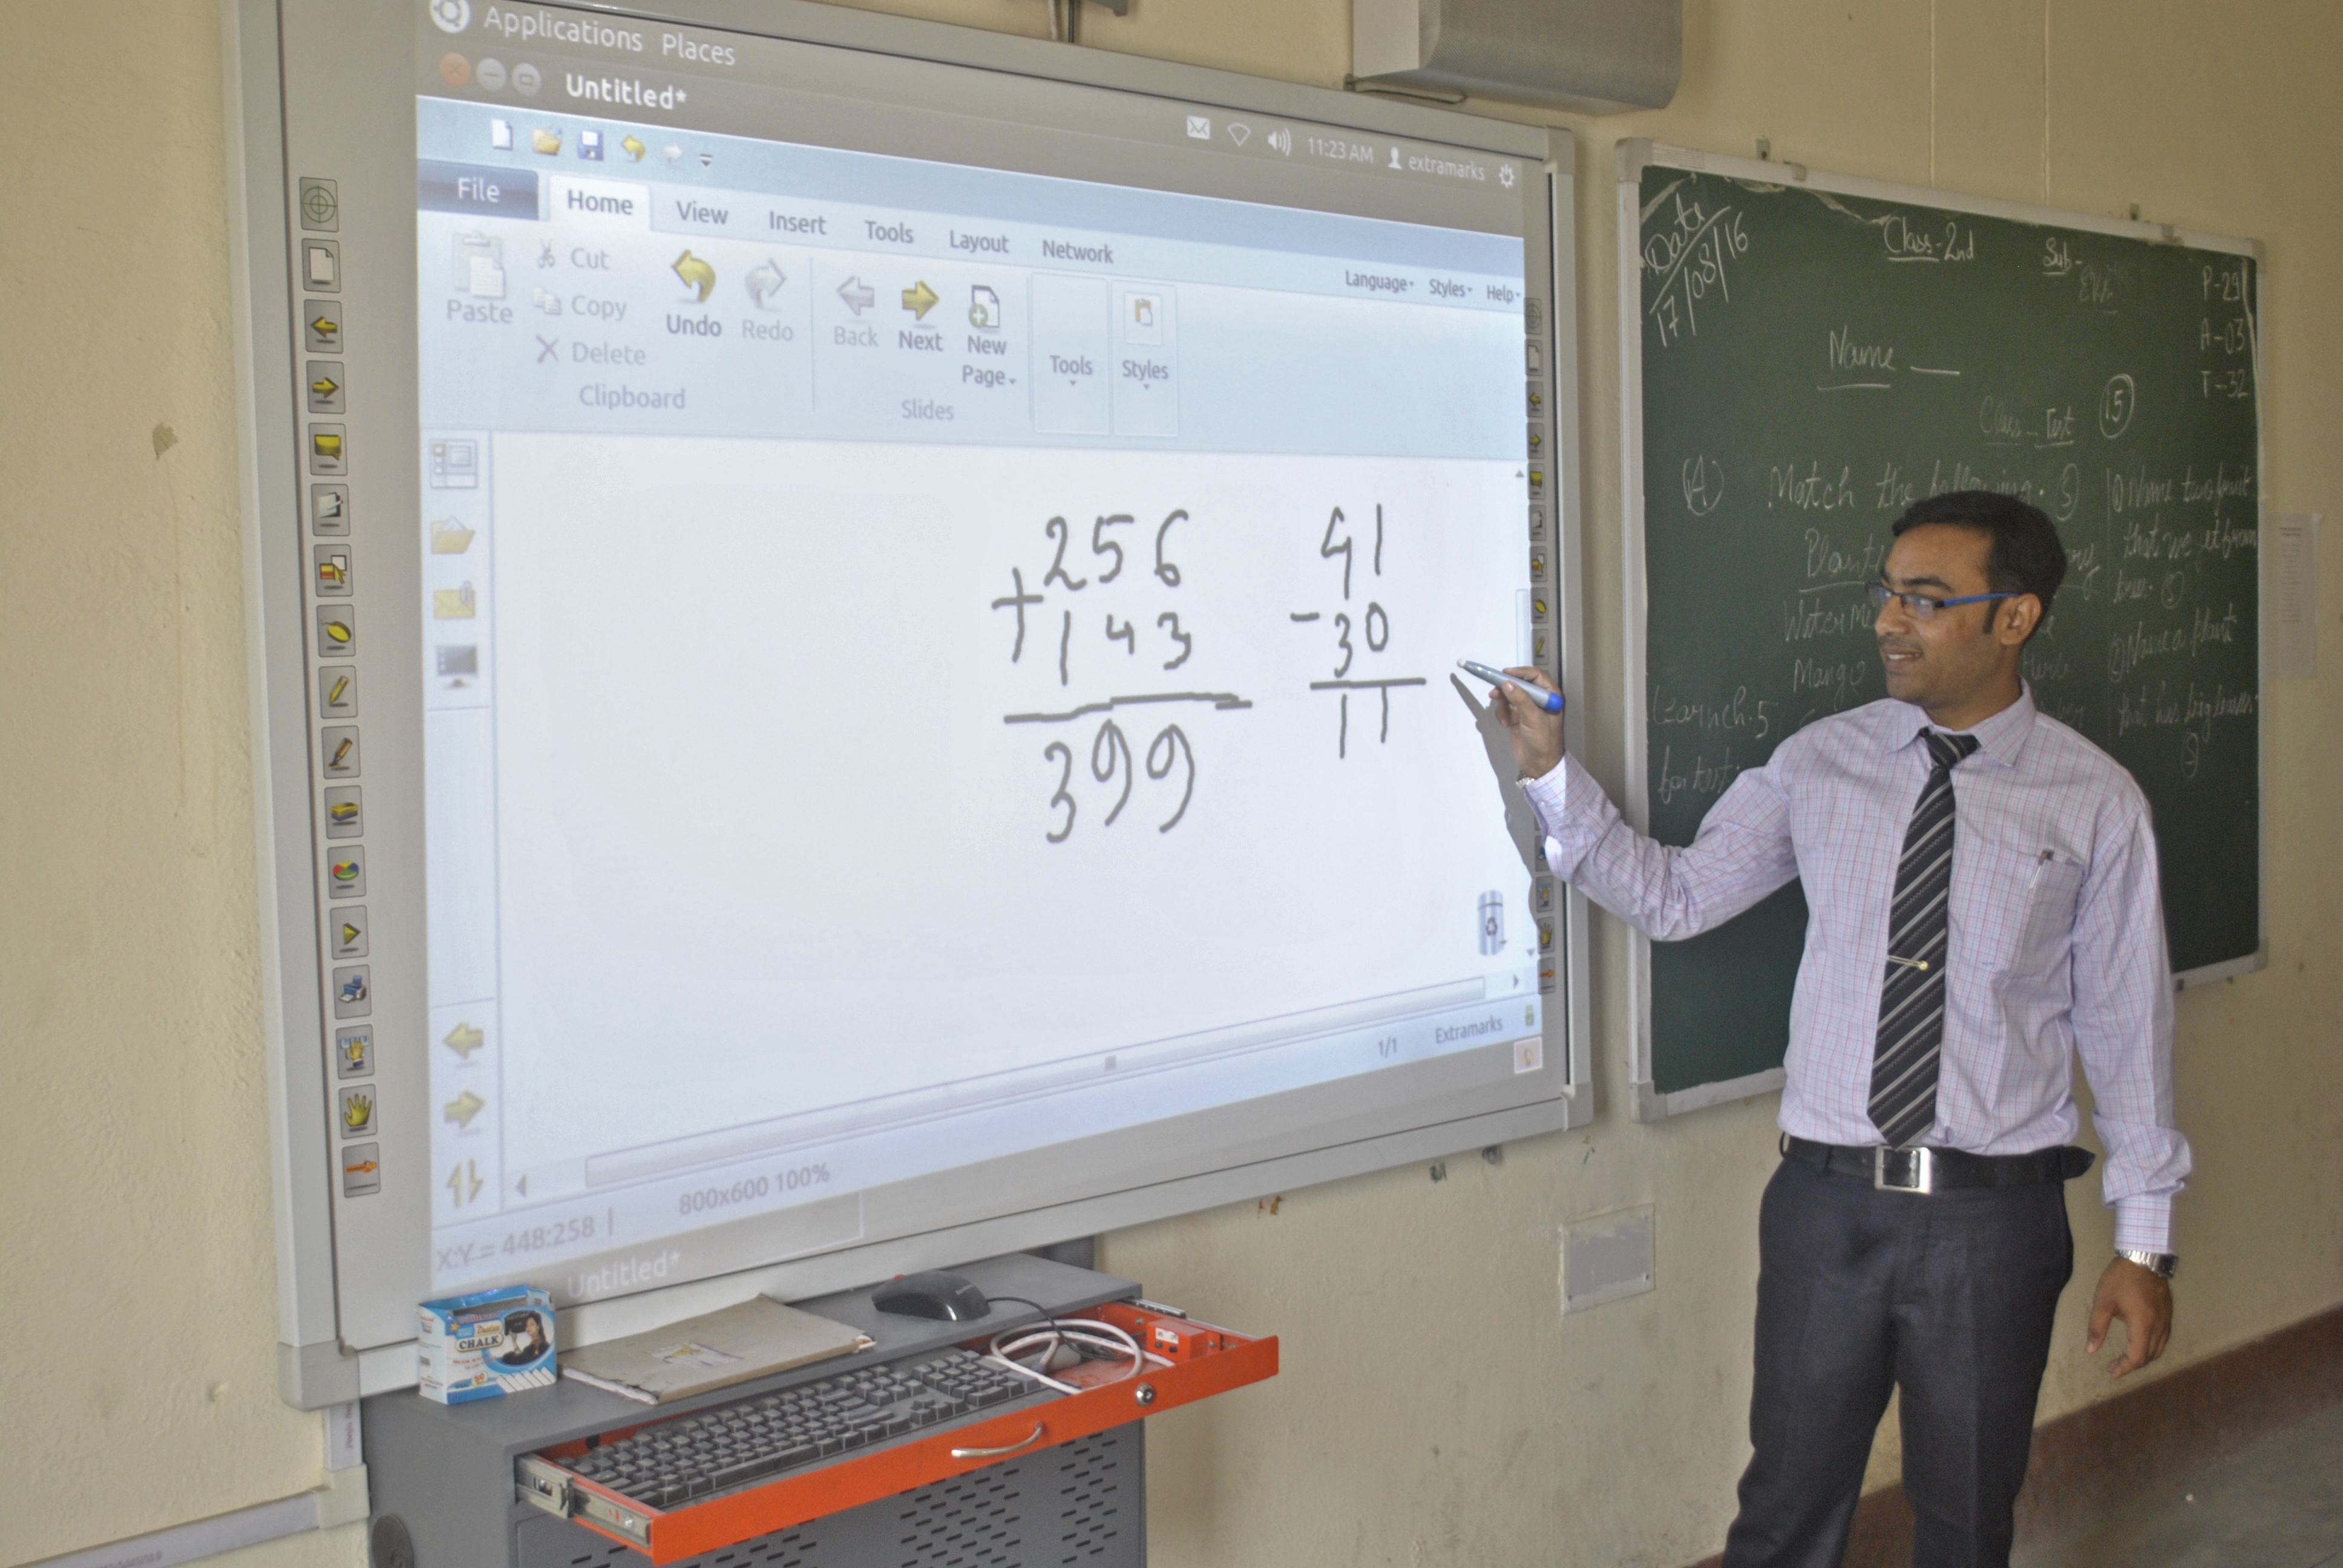 Applications Places
Untitled*
11:23 AM extramarks
File Home View Insert Tools Layout Network
Language Styles Help
Paste
Cut
Copy
Delete
Clipboard
Undo Redo
Back Next New Page
Slides
Tools
Styles
256
+143
399
41
-30
11
1/1 Extramarks
800x600 100%
X:Y = 448:258
Untitled*
CHALK
Date
17/08/16
Class-2nd
Sub-
P-29
A-03
T-32
Name
15
Class-Test
(A) Match the following. 5
Mango
Learn ch.5
for test
Name two fruit
that we get from
tree.
Name a plant
that has big leaves.